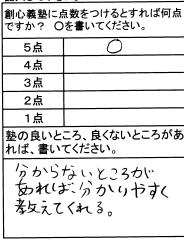 創心義塾に点数をつけるとすれば何点
ですか？ ○を書いてください。
5点 ○
4点
3点
2点
1点
塾の良いところ、良くないところがあ
れば、書いてください。
分からないところが
あれば、分かりやすく
教えてくれる。